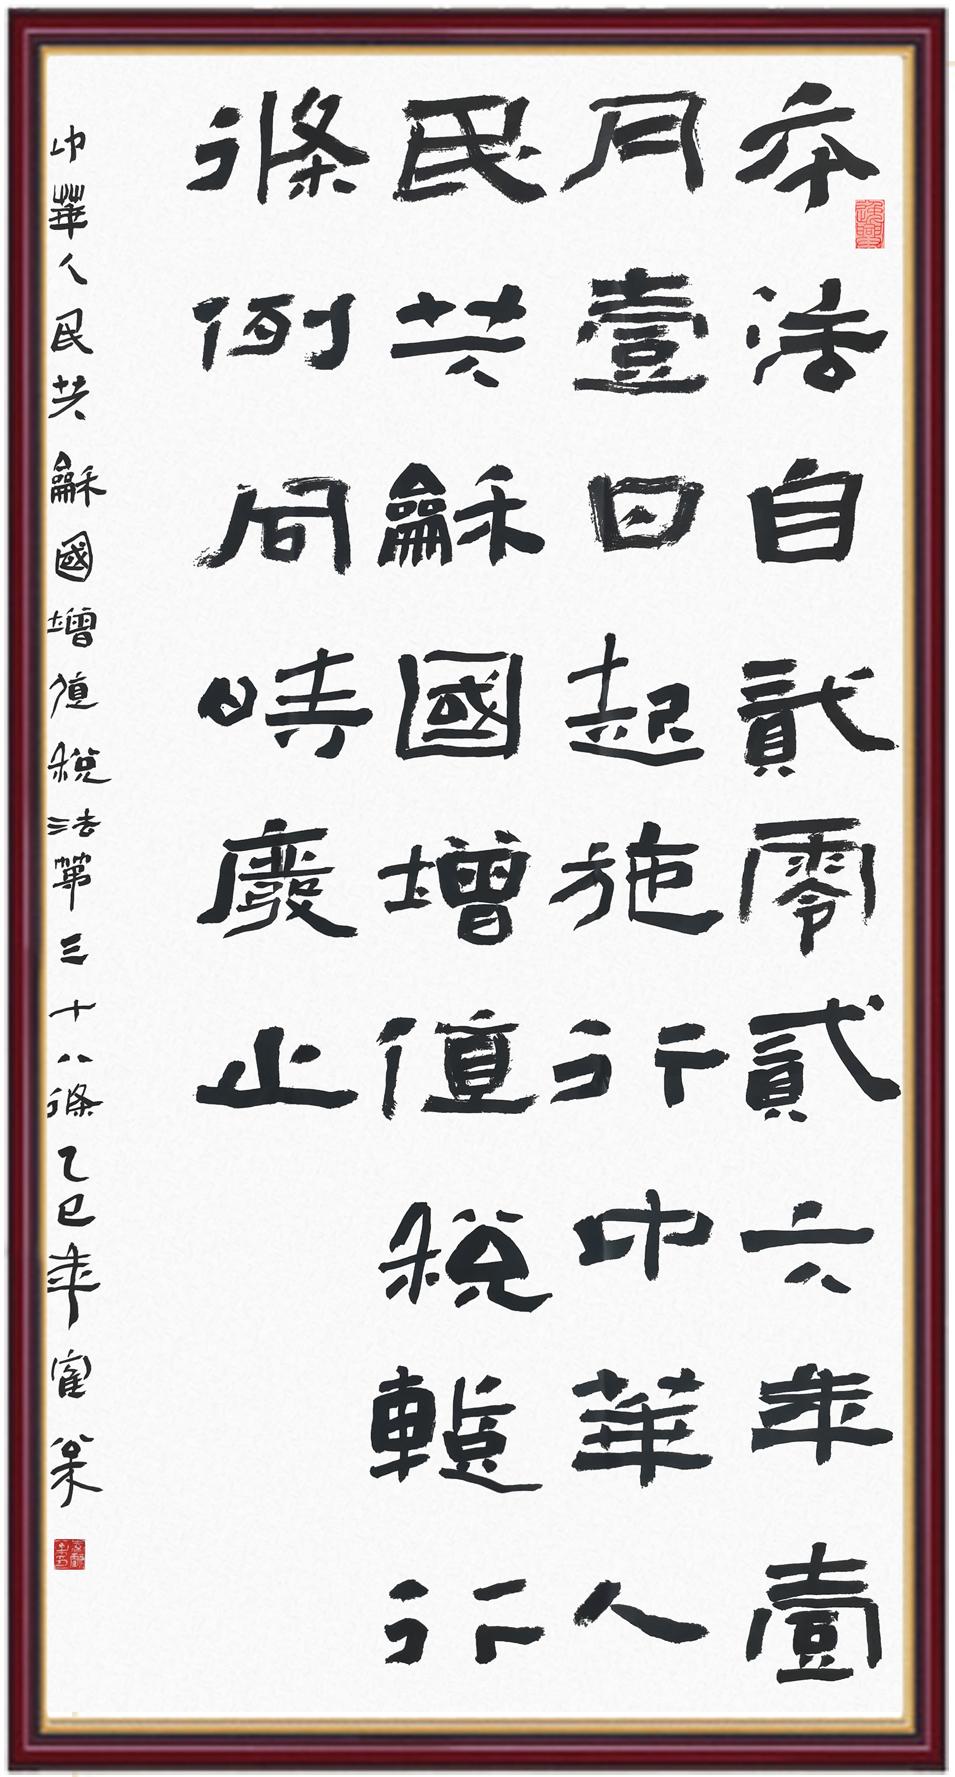 本法自貳零貳六年壹
月壹日起施行中華人
民共龢國增值稅暫行
條例同時廢止
中華人民共龢國增值稅法第三十八條乙巳年